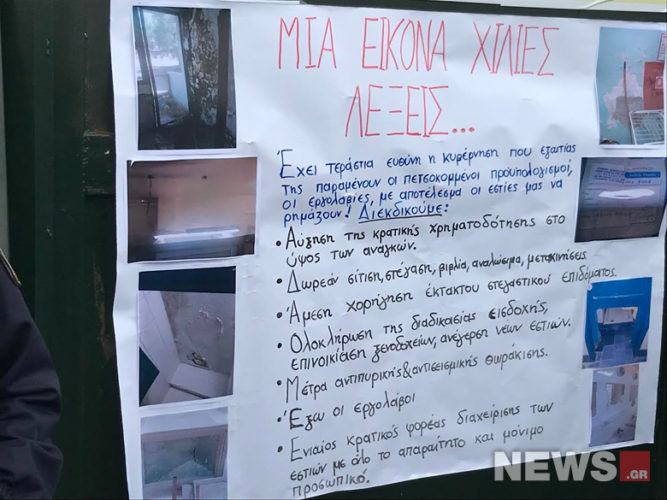 ΜΙΑ ΕΙΚΟΝΑ ΧΙΛΙΕΣ
ΛΕΞΕΙΣ...
Έχει τεράστια ευθύνη η κυβέρνηση που εξαιτίας
της παραμένουν οι πετσοκομμένοι προϋπολογισμοί,
οι εργολαβίες, με αποτέλεσμα οι εστίες μας να
ρημάζουν! Διεκδικούμε:
• Αύξηση της κρατικής χρηματοδότησης στο
ύψος των αναγκών.
• Δωρεάν σίτιση, στέγαση, βιβλία, αναλώσιμα, μετακινήσεις
• Άμεση χορήγηση έκτακτου στεγαστικού επιδόματος.
• Ολοκλήρωση της διαδικασίας εισδοχής,
επινοικίαση ξενοδοχείων, ανέγερση νέων εστιών.
• Μέτρα αντιπυρικής & αντισεισμικής θωράκισης.
• Έξω οι εργολάβοι
• Ενιαίος κρατικός φορέας διαχείρισης των
εστιών με όλο το απαραίτητο και μόνιμο
προσωπικό.
NEWS.GR